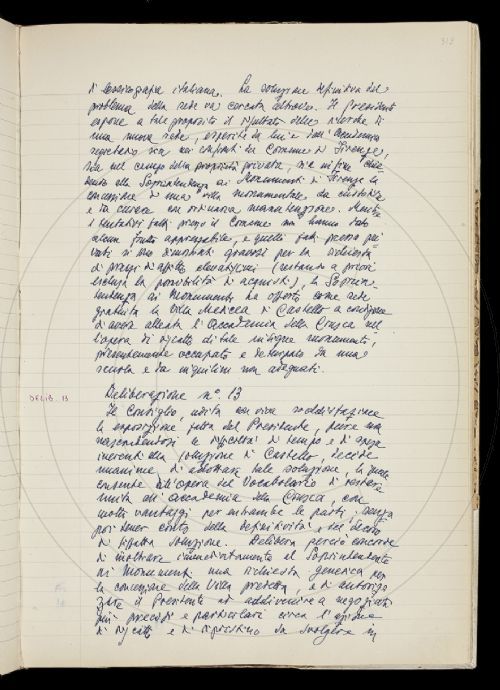 312
di lessicografia italiana. La soluzione definitiva del
problema della sede va cercata altrove. Il Presidente
espone a tale proposito il risultato delle ricerche di
una nuova sede, esperite da lui e dall'accademico
segretario sia nei confronti del Comune di Firenze,
sia nel campo della proprietà privata, sia infine chie-
dendo alla Soprintendenza ai Monumenti di Firenze la
concessione di una villa monumentale da custodire
e da curare con ordinaria manutenzione. Mentre
i tentativi fatti presso il Comune non hanno dato
alcun frutto apprezzabile, e quelli fatti presso pri-
vati si sono dimostrati gravosi per la richiesta
di prezzi d'affitto elevatissimi (restando a priori
esclusa la possibilità di acquisti), la Soprin-
tendenza ai Monumenti ha offerto come sede
gratuita la Villa Medicea di Castello a condizione
di avere alleata l'Accademia della Crusca nel
l'opera di riscatto di tale insigne monumento,
presentemente occupato e deturpato da una
scuola e da inquilini non adeguati.
DELIB. 13
Deliberazione n°. 13
Il Consiglio, udita con viva soddisfazione
la esposizione fatta dal Presidente, pure non
nascondendosi le difficoltà di tempo e di spesa
inerenti alla soluzione di Castello, decide
unanime di adottare tale soluzione, la quale
consente all'Opera del Vocabolario di restare
unita all'Accademia della Crusca, con
molti vantaggi per entrambe le parti, senza
poi tener conto della definitività e del decoro
di siffatta soluzione. Delibera perciò concorde
di inoltrare immediatamente al Soprintendente
ai Monumenti una richiesta generica per
la concessione della Villa predetta, e di autoriz-
zare il Presidente ad addivenire a negoziati
più precisi e particolari circa l'azione
di riscatto e di ripristino da svolgere in